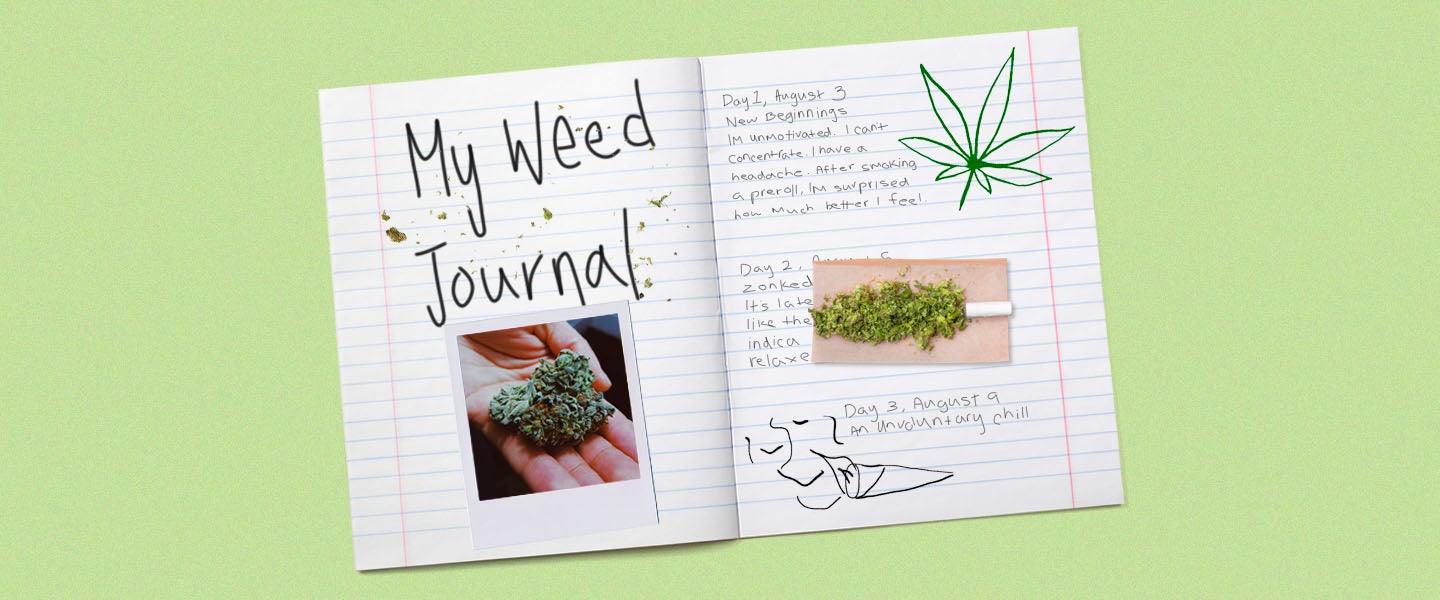 My Weed
Journal
Day 1, August 3
New Beginnings
IM unmotivated. I can't
concentrate. I have a
headache. After smoking
a preroll, IM surprised
how much better I feel.
Day 2,
zonked
It's late
like the
indica
relaxe
Day 3, August 9
An unvoluntary chill